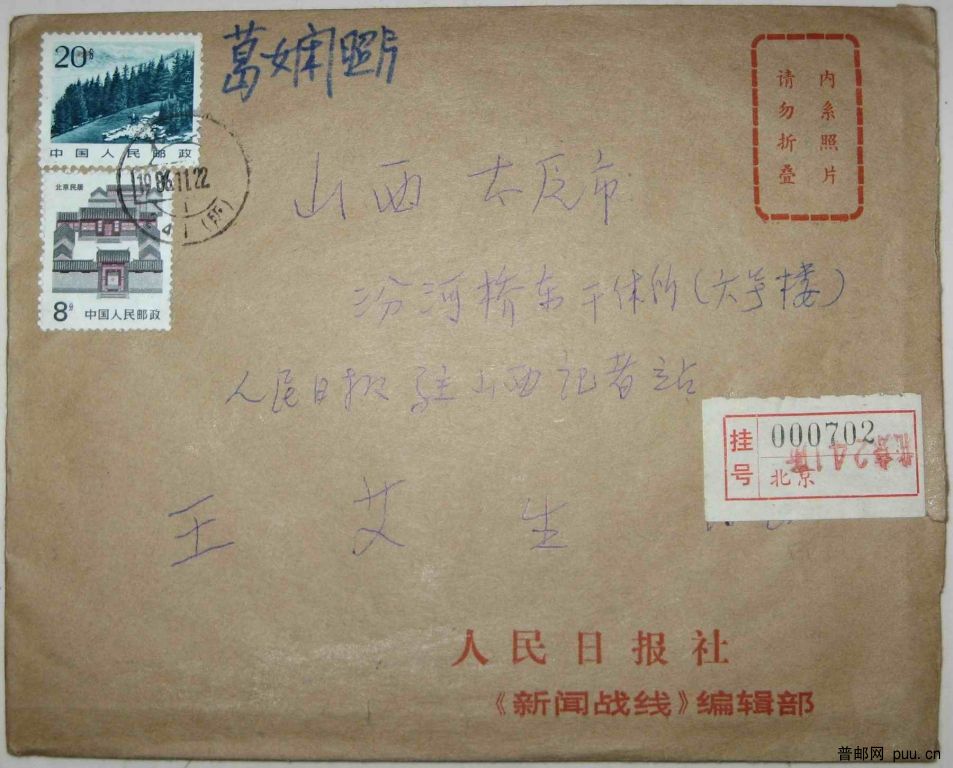 20分
天山
中国人民邮政
北京民居
8分
中国人民邮政
1986.11.22
葛娴照片
内系照片
请勿折叠
山西 太原市
汾河桥东干休所(六号楼)
人民日报驻山西记者站
挂号
000702
北京
北京241支
王艾生
人民日报社
《新闻战线》编辑部
普邮网 puu.cn